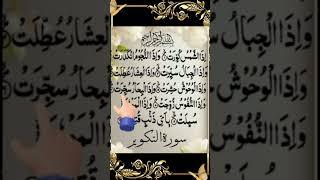 بِسْمِ اللهِ الرَّحْمٰنِ الرَّحِيْمِ
اِذَا الشَّمْسُ كُوِّرَتْ وَاِذَا النُّجُوْمُ انْكَدَرَتْ
وَاِذَا الْجِبَالُ سُيِّرَتْ وَاِذَا الْعِشَارُ عُطِّلَتْ
وَاِذَا الْوُحُوْشُ حُشِرَتْ وَاِذَا الْبِحَارُ سُجِّرَتْ
وَاِذَا النُّفُوْسُ زُوِّجَتْ وَاِذَا
سُىِٕلَتْ بِاَىِّ ذَنْۢبٍ
سورة التكوير